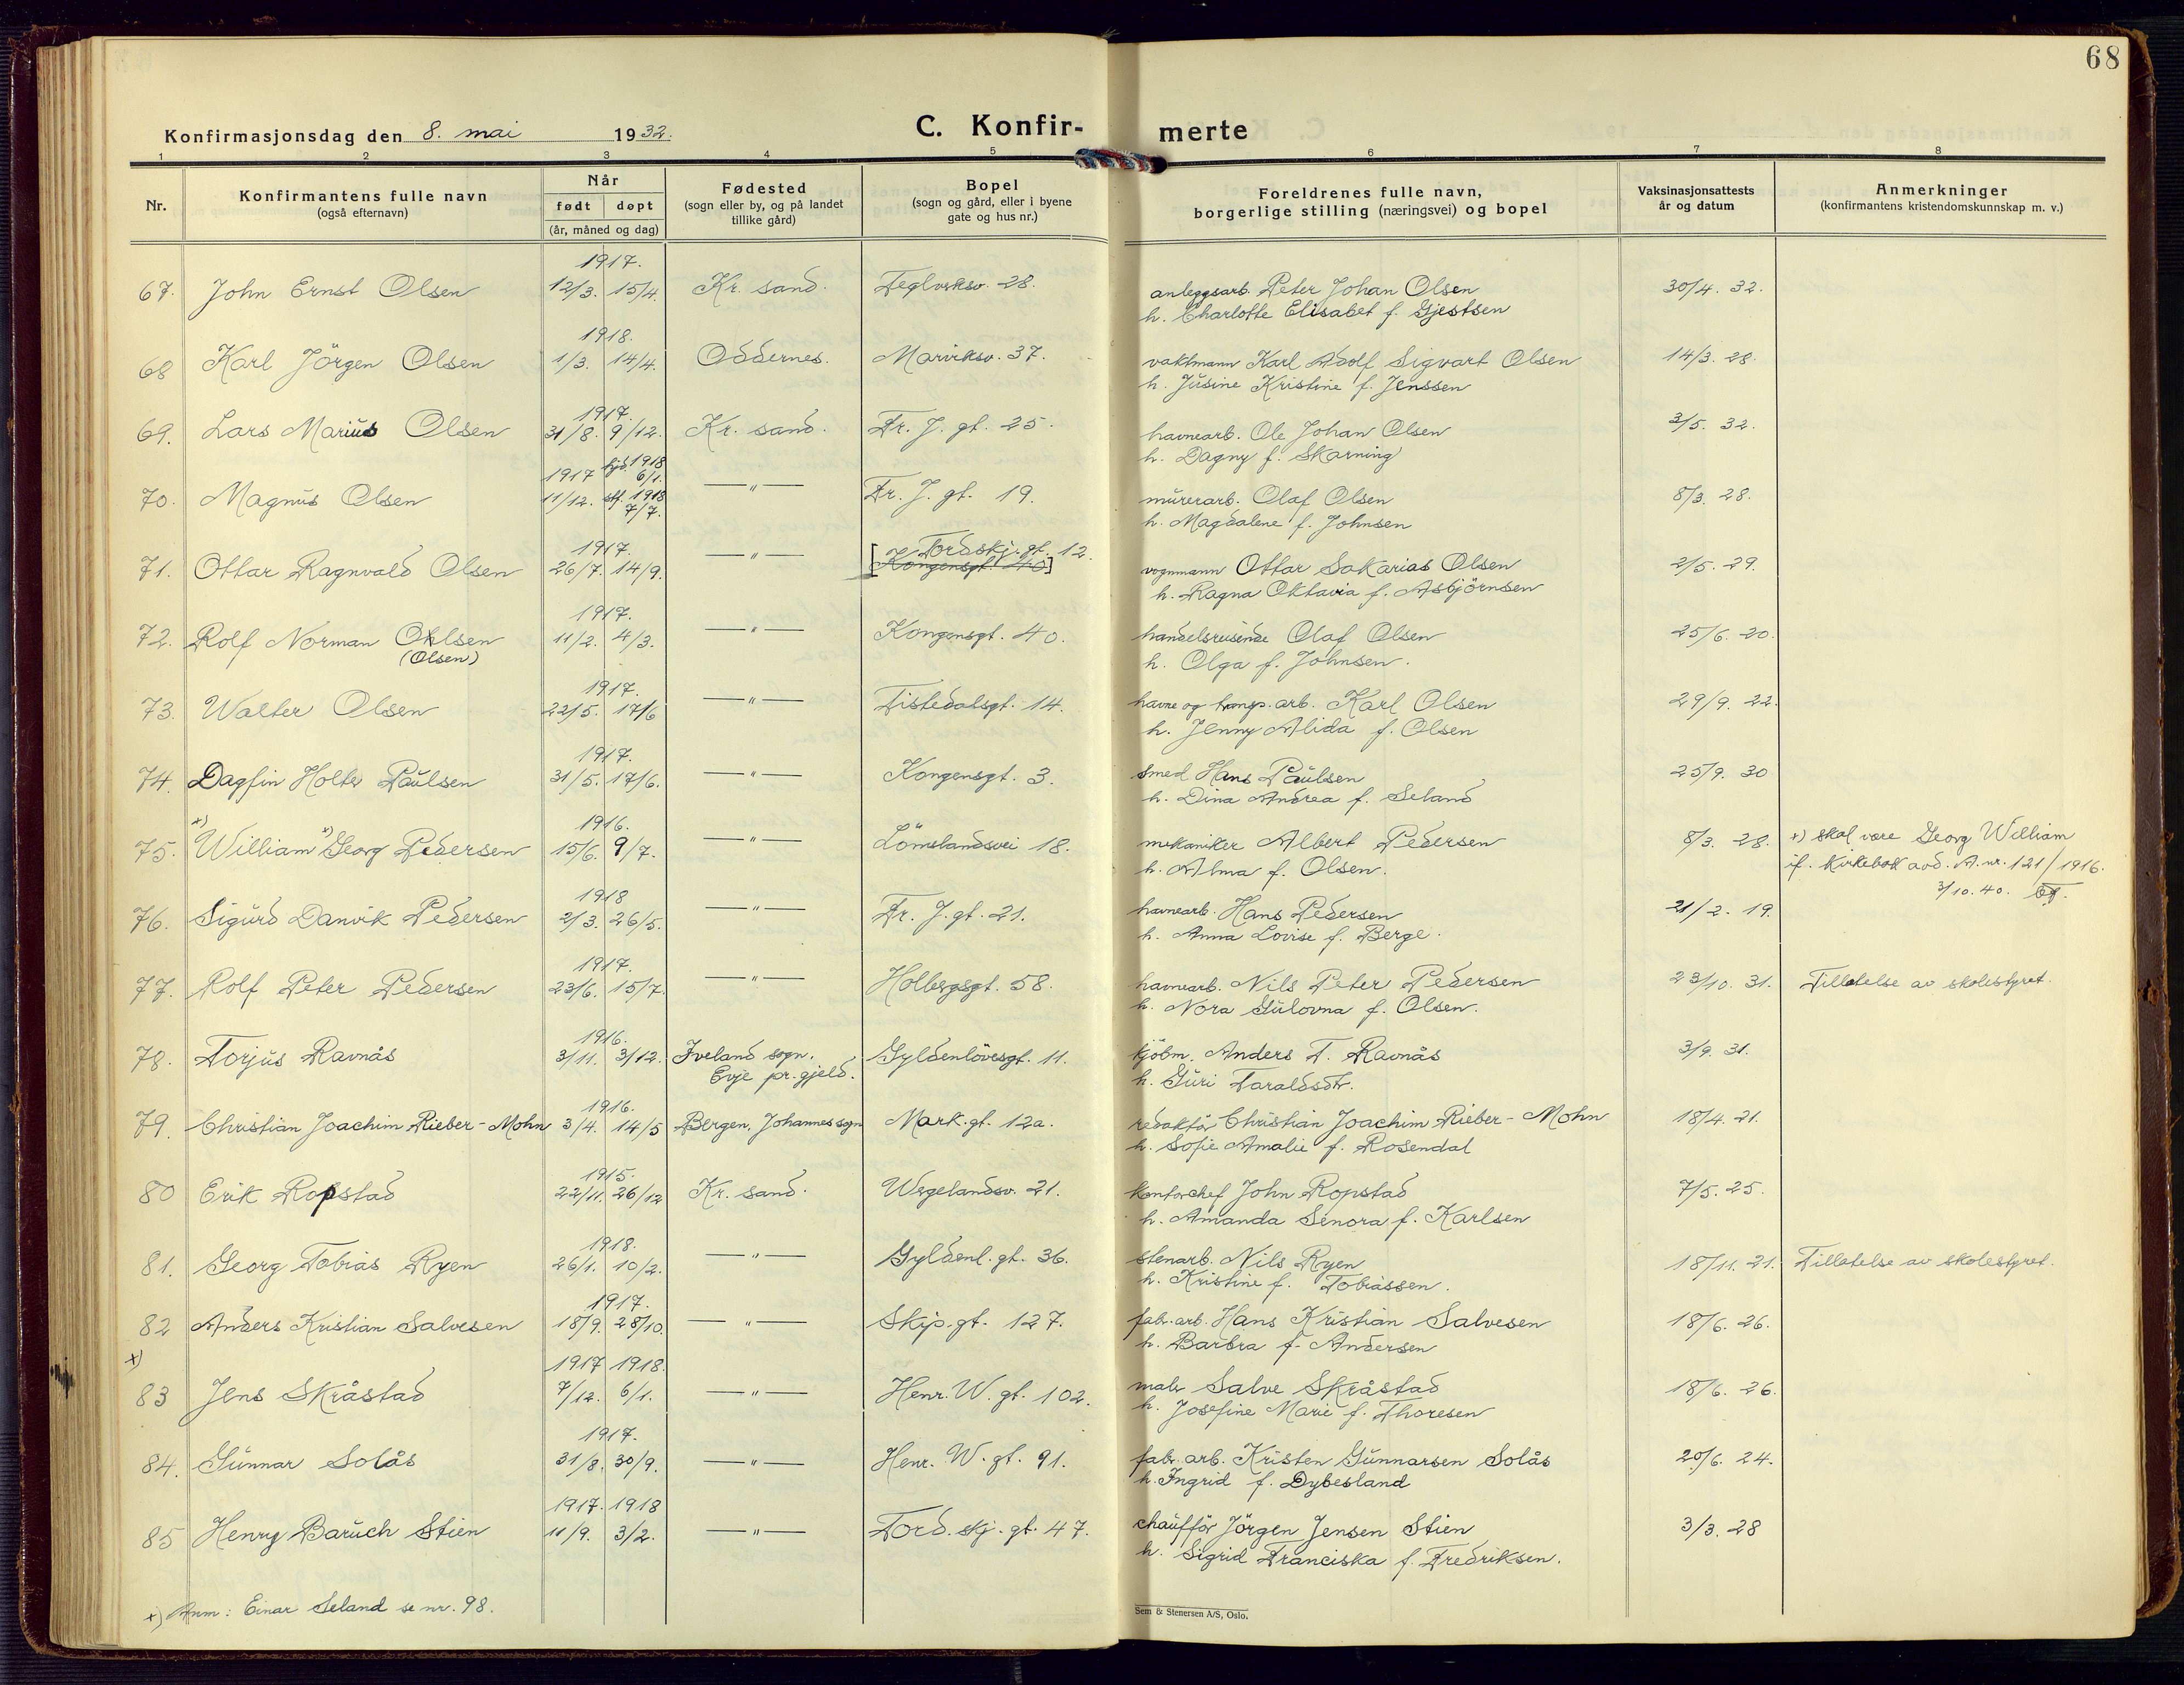 68
Konfirmasjonsdag den 8. mai 1932.
C. Konfir- merte
1 2 3 4 5 6 7 8
Nr.
Konfirmantens fulle navn
(også efternavn)
Når
født døpt
(år, måned og dag)
Fødested
(sogn eller by, og på landet
tillike gård)
Bopel
(sogn og gård, eller i byene
gate og hus nr.)
Foreldrenes fulle navn,
borgerlige stilling (næringsvei) og bopel
Vaksinasjonsattests
år og datum
Anmerkninger
(konfirmantens kristendomskunnskap m. v.)
1917.
67. John Ernst Olsen 12/3. 15/4. Kr. sand. Teglverksv. 28. anleggsarb. Peter Johan Olsen 30/4. 32.
h. Charlotte Elisabet f. Gjestsen
1918.
68 Karl Jörgen Olsen 1/3. 14/4. Oddernes. Marviksv. 37. vaktmann Karl Adolf Sigvart Olsen 14/3. 28.
h. Jusine Kristine f. Jenssen
1917.
69. Lars Marius Olsen 31/8. 9/12. Kr. sand. Fr. J. gt. 25. havnearb. Ole Johan Olsen 3/5. 32.
h. Dagny f. Skarning
1917 hjd. 1918 6/1.
70. Magnus Olsen 11/12. stf. 1918 7/7. —"— Fr. J. gt. 19. murerarb. Olaf Olsen 8/3. 28.
h. Magdalene f. Johnsen
1917. Tordskj. gt. 12.
71. Ottar Ragnvald Olsen 26/7. 14/9. —"— [Kongensgt. 40] vognmann Ottar Sakarias Olsen 2/5. 29.
h. Ragna Oktavia f. Asbjörnsen
1917.
72. Rolf Norman Ohlsen 11/2. 4/3. —"— Kongensgt. 40. handelsreisende Olaf Olsen 25/6. 20.
(Olsen) h. Olga f. Johnsen.
1917.
73. Walter Olsen 22/5. 17/6 —"— Tistedalsgt. 14. havne og transp. arb. Karl Olsen 29/9. 22.
h. Jenny Alida f. Olsen
1917.
74. Dagfin Holter Paulsen 31/5. 17/6. —"— Kongensgt. 3. smed Hans Paulsen 25/9. 30
h. Dina Andrea f. Seland
1916.
75. x) William x) Georg Pedersen 15/6. 9/7. —"— Lömslandsvei 18. mekaniker Albert Pedersen 8/3. 28. x) skal være Georg William
h. Alma f. Olsen. if. kirkebok avd. A. nr. 121/1916.
3/10. 40.
1918
76. Sigurd Danvik Pedersen 2/3. 26/5. —"— Fr. J. gt. 21. havnearb. Hans Pedersen 21/2. 19.
h. Anna Lovise f. Berge.
1917.
77. Rolf Peter Pedersen 23/6. 15/7. —"— Holbergsgt. 58. havnearb. Nils Peter Pedersen 23/10. 31. Tillatelse av skolestyret.
h. Nora Gulovna f. Olsen.
1916.
78. Torjus Ravnås 3/11. 3/12. Iveland sogn. Gyldenlövesgt. 11. kjöbm. Anders T. Ravnås 3/9. 31.
Evje pr. gjeld. h. Guri Taraldsdtr.
1916.
79. Christian Joachim Rieber-Mohn 3/4. 14/5 Bergen, Johannes sogn Mark. gt. 12a. redaktör Christian Joachim Rieber-Mohn 18/4. 21.
h. Sofie Amalie f. Rosendal
1915.
80 Erik Ropstad 22/11. 26/12 Kr. sand. Wergelandsv. 21. kontorchef John Ropstad 7/5. 25.
h. Amanda Senora f. Karlsen
1918.
81. Georg Tobias Ryen 26/1. 10/2. —"— Gyldenl. gt. 36. stenarb. Nils Ryen 18/11. 21. Tillatelse av skolestyret.
h. Kristine f. Tobiassen.
1917.
82 Anders Kristian Salvesen 18/9. 28/10. —"— Skip. gt. 127. fabr. arb. Hans Kristian Salvesen 18/6. 26.
h. Barbra f. Andersen
x) 1917 1918.
83 Jens Skråstad 7/12. 6/1. —"— Henr. W. gt. 102. maler Salve Skråstad 18/6. 26.
h. Josefine Marie f. Thoresen
1917.
84. Gunnar Solås 31/8. 30/9. —"— Henr. W. gt. 91. fabr. arb. Kristen Gunnarsen Solås 20/6. 24.
h. Ingrid f. Dybesland
1917. 1918
85 Henry Baruch Stien 11/9. 3/2. —"— Tord. skj. gt. 47. chaufför Jörgen Jensen Stien 3/3. 28
h. Sigrid Franciska f. Fredriksen.
x) Anm: Einar Seland se nr. 98.
Sem & Stenersen A/S, Oslo.